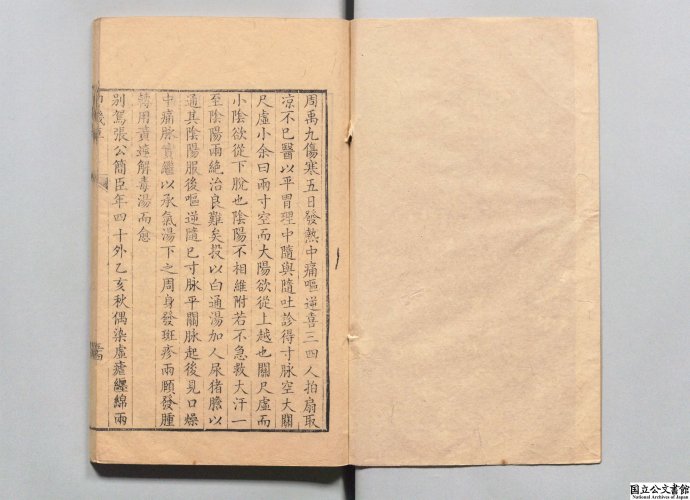 周禹九傷寒五日發熱中痛嘔逆喜三四人拍扇取
凉不已醫以平胃理中隨與隨吐診得寸脉空大關
尺虛小余曰兩寸空而大陽欲從上越也關尺虛而
小陰欲從下脫也陰陽不相維附若不急救大汗一
至陰陽兩絶治良難矣投以白通湯加人尿猪膽以
通其陰陽服後嘔逆隨已寸脉平關脉起後見口燥
中痛脉實繼以承氣湯下之周身發斑疹兩頤發腫
轉用黄連解毒湯而愈
别駕張公簡臣年四十外乙亥秋偶染虛瘧纒綿兩
国立公文書館
National Archives of Japan